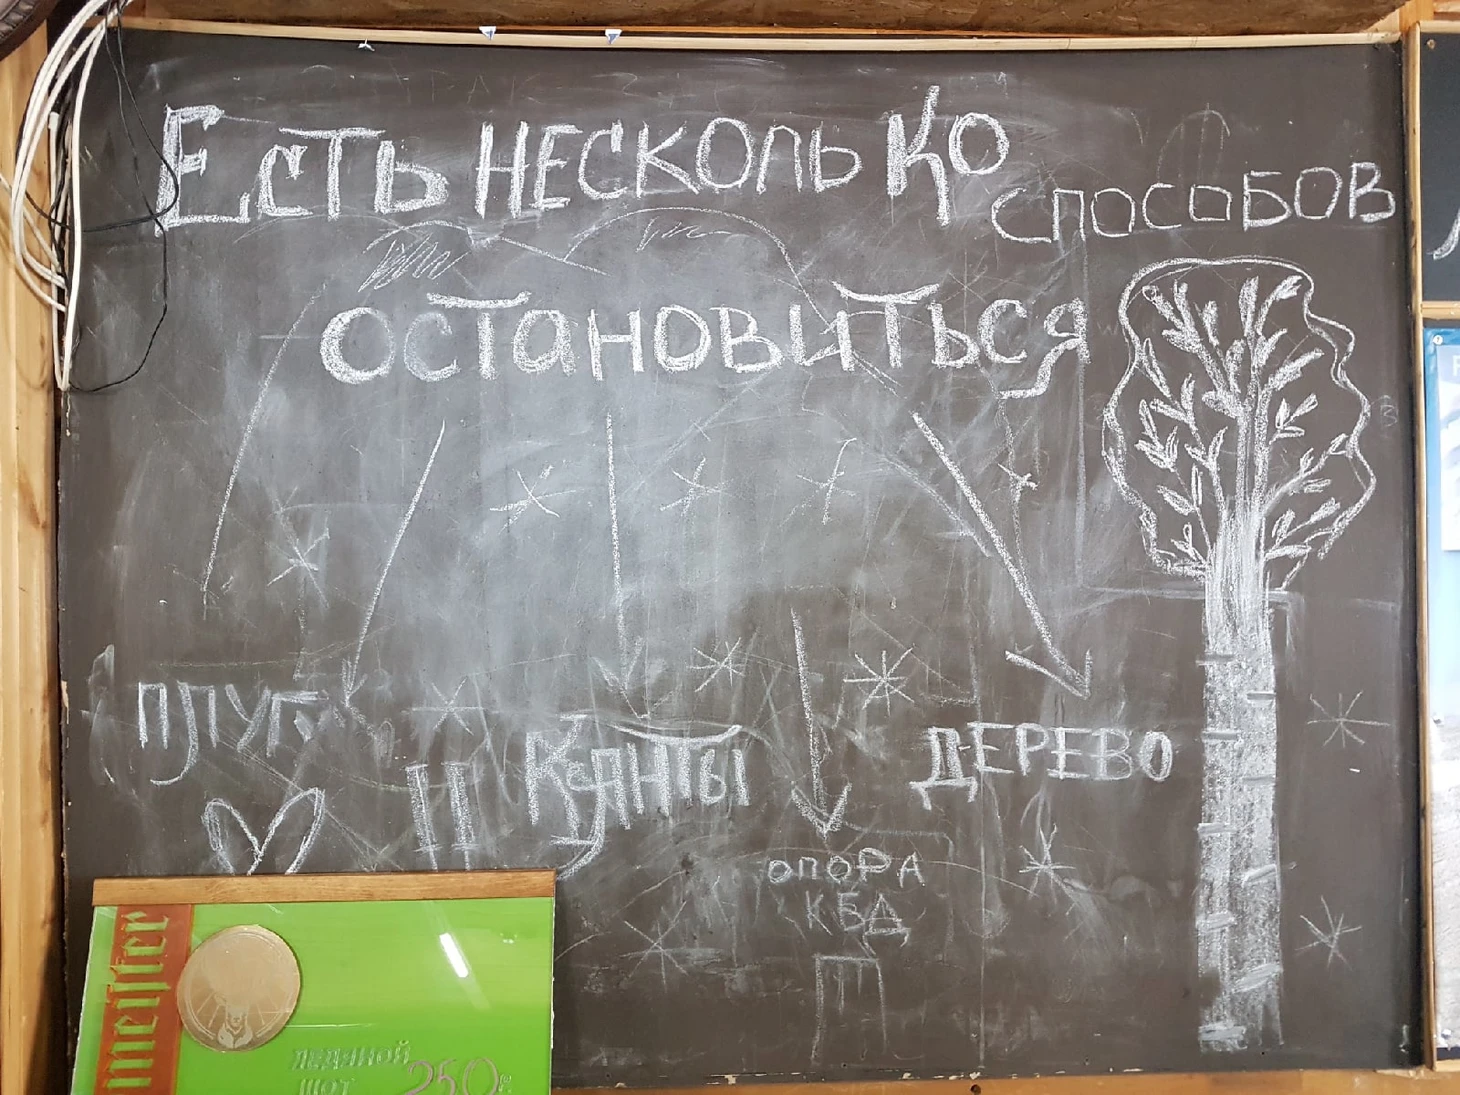 Есть НЕСКОЛЬКО
СПОСОБОВ
ОСТАНОВИТЬСЯ
ПЛУГ
КАНТЫ
ДЕРЕВО
ОПОРА
КБД
meister
ЛЕДЯНОЙ
ШОТ 250